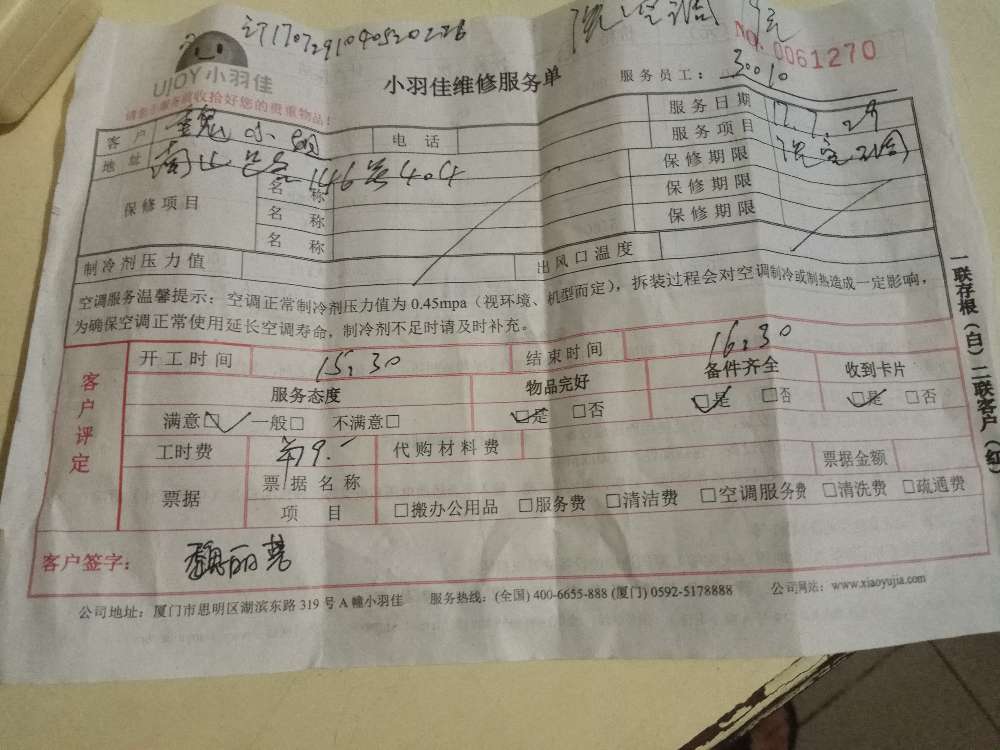 洗空调
NO. 0061270
UJOY小羽佳
小羽佳维修服务单
服务员工: 30010
客户 魏小姐 电话 服务日期 17.7.29
地址 146号404 服务项目 洗空调
保修项目 名称 保修期限
名称 保修期限
名称 保修期限
制冷剂压力值 出风口温度
空调服务温馨提示：空调正常制冷剂压力值为 0.45mpa（视环境、机型而定），拆装过程会对空调制冷或制热造成一定影响，
为确保空调正常使用延长空调寿命，制冷剂不足时请及时补充。
客户评定
开工时间 15:30 结束时间 16:30
服务态度 物品完好 备件齐全 收到卡片
满意☑ 一般□ 不满意□ ☑是 □否 ☑是 □否 ☑是 □否
工时费 代购材料费
票据 票据名称 票据金额
项目 □搬办公用品 □服务费 □清洁费 □空调服务费 □清洗费 □疏通费
客户签字： 魏丽慧
公司地址：厦门市思明区湖滨东路 319 号 A 幢小羽佳 服务热线：(全国) 400-6655-888 (厦门) 0592-5178888 公司网站：www.xiaoyujia.com
一联存根（白）二联客户（红）